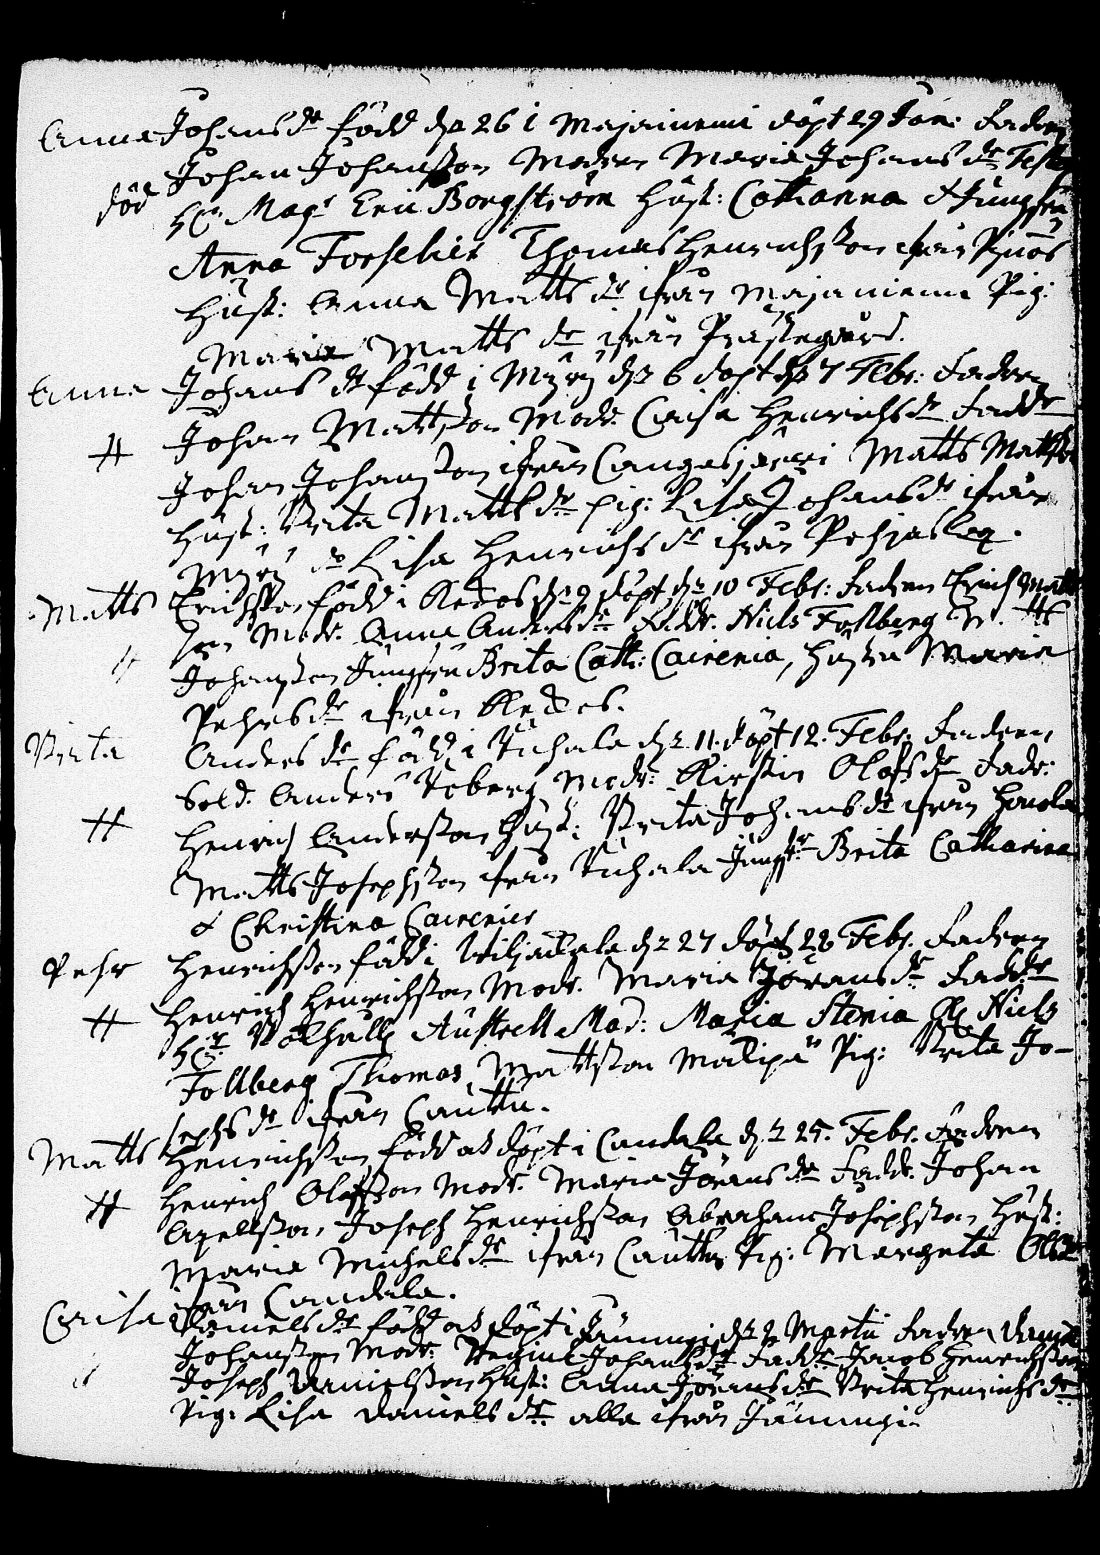 Anna Johansdr född d. 26 i Majaniemi döpt 29 Jan: Fadren
Johan Johansson Modren Maria Johansdr Test:
död Hr Magr Eric Borgström Hust: Catharina & Jungfru
Anna Forselier Thomas Henrichsson ifrån
Hust: Anna Mattsdr ifrån Majaniemi Pig:
Maria Mattsdr ifrån Prästegård.
Anna Johansdr född i Myry d. 6 döpt d. 7 Febr: Fadren
# Johan Mattsson Modr. Caisa Henrichsdr Faddr
Johan Johansson ifrån Cangasjervi Matts Mattss.
Hust: Brita Mattsdr Pig: Lisa Johansdr ifrån
Myry Lisa Henrichsdr ifrån
Matts Erichsson född i Keckos d. 9 döpt d. 10 Febr: Fadren Erich Matts
son Modr. Anna Andersdr Faddr. Niels Follberg
Johansson Jungfru Brita Cath: Cairenia, Hustru Maria
Pehrsdr ifrån
Brita Andersdr född i Tuhala d. 11. döpt 12. Febr. Fadren
Sold. Anders Roberg Modr: Kirstin Olofsdr Fadr:
# Henrich Andersson Hust: Brita Johansdr ifrån
Matts Josephsson ifrån Tuhala Jungfr: Brita Catharina
& Christina Cairenier
Pehr Henrichsson född i Viljakkala d. 27 döpt 28 Febr. Fadren
# Henrich Henrichsson Modr. Maria Jöransdr Faddr
Hr. Austrell Mad: Maria Stenia Niels
Follberg Thomas Mattsson Pig: Brita Jo-
sephsdr ifrån Cauttu.
Matts Henrichsson född och döpt i Candela d. 25. Febr. Fadren
# Henrich Olofsson Modr. Maria Jöransdr Faddr. Johan
Axelsson Joseph Henrichsson Abraham Josephsson Hust:
Maria Michelsdr ifrån Cauttu Pig: Margeta Olsdr
ifrån Candela.
Caisa Danielsdr född och döpt i Jämmijerfvi d. 2 Martii Fadren Daniel
Johansson Modr. Regina Johansdr Faddr Jacob Henrichsson
Joseph Danielsson Hust: Anna Jöransdr Brita Henrichsdr
Pig: Lisa Danielsdr alla ifrån